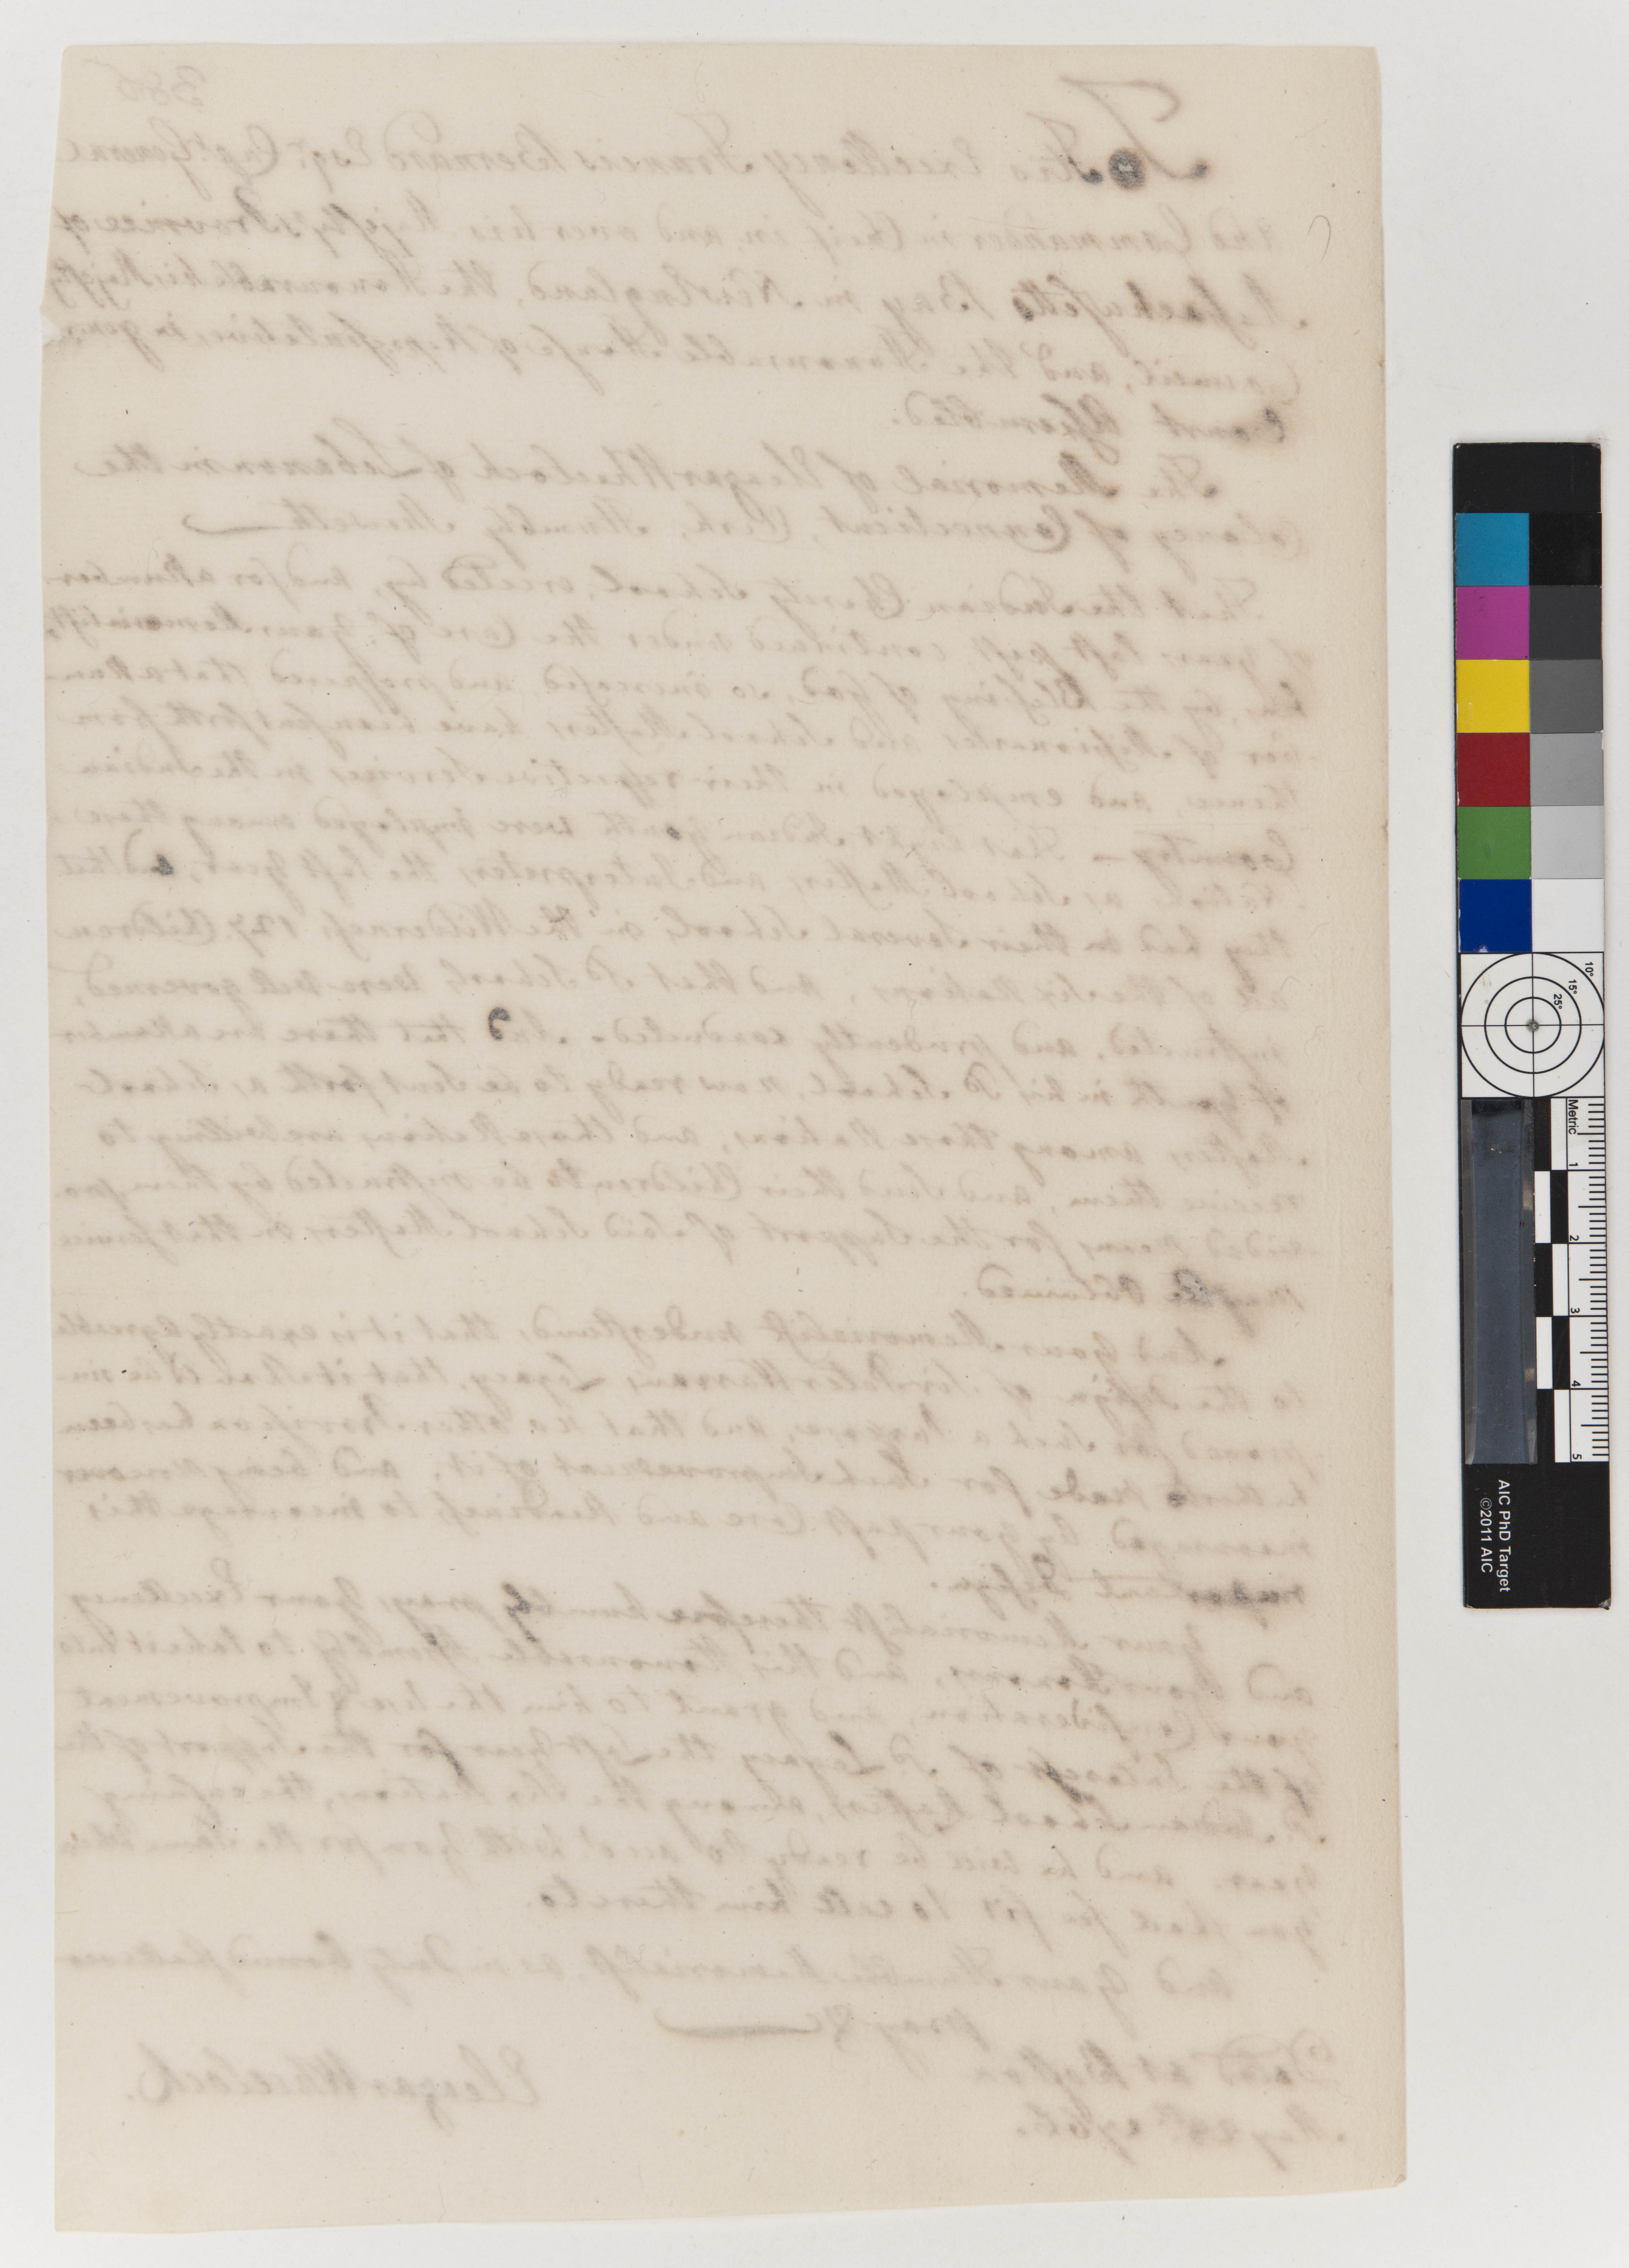 385
To His Excellency Francis Bernard Esqr. Capt. General
and Commander in Chief in and over his Majesty's Province of
Massachusetts Bay in New England, the Honourable his Majesty's
Council, and the Honourable House of Representatives, in
Court Assembled.
The Memorial of Eleazar Wheelock of Lebanon in the
Colony of Connecticut, Clerk, Humbly Sheweth
That the Indian Charity School, erected by, and for a Number
of years last past continued under the Care of your Memorialist,
has, by the Blessing of God, so increased, and prospered that a Num-
ber of Missionaries and School Masters have been sent forth from
thence, and employed in their respective Services in the Indian
Country — That Eight Indian youth were employed among those
Natives as School Masters and Interpreters the last year, and that
they had in their Several Schools in the Wilderness 127 Children
all of the six Nations, and that sd. Schools were well governed,
instructed, and prudently conducted. And that there are a Number
of youth in his sd. School, now ready to be sent forth as School-
Masters among those Nations, and those Nations are willing to
receive them, and send their Children to be instructed by them pro-
vided means for the Support of said School Masters in this service
may be obtained.
And your Memorialist understand, that it is exactly agreeable
to the design of Sir Peter Warrens Legacy, that it shall be im-
proved for such a purpose, and that no other Provision has been
hitherto made for such Improvement of it, and being Moreover
encouraged by your past Care and Readiness to incourage this
important Design.
Your Memorialist therefore humbly prays your Excellency
and your Honours, and this Honourable Assembly to take it into
your Consideration, and grant to him the Use & Improvement
of the Interest of sd. Legacy the Last year for the Support of the
sd. Indian School Masters, among the six Nations, the ensuing
year. and he will be ready to acct. with you for the same when
you shall see fit to call him thereto.
and your Humble Memorialist, as in Duty bound shall ever
pray &c
Dated at Boston
Eleazar Wheelock.
May
10°
15°
25°
Metric
1
2
3
4
5
AIC PhD Target
©2011 AIC